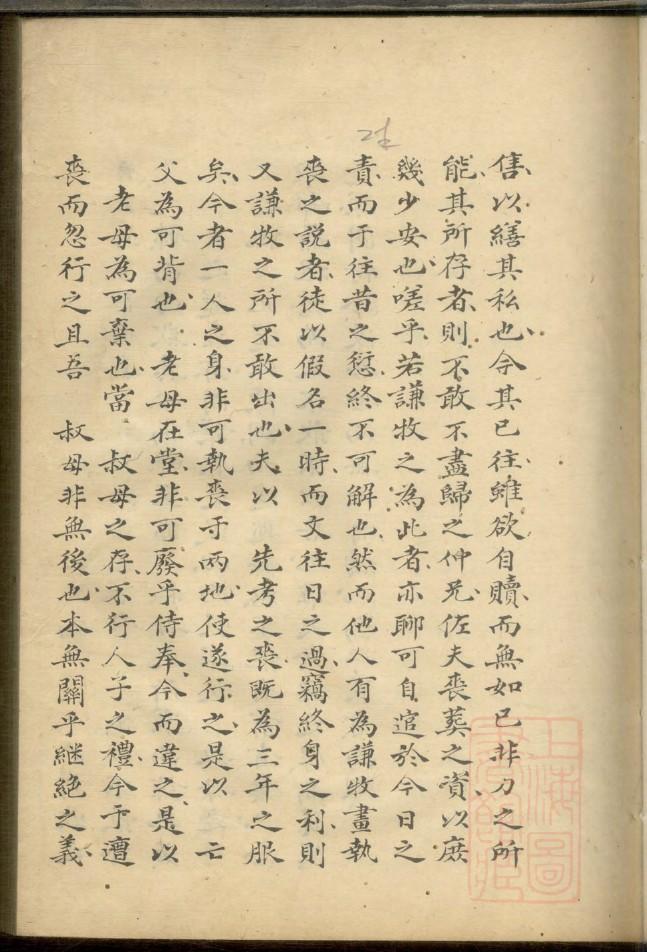 售以繕其私也今其已往雖欲自贖而無如已非力之所
能其所存者則不敢不盡歸之仲兄佐夫喪葬之資以庶
幾少安也嗟乎若謙牧之為此者亦聊可自逭於今日之
責而于往昔之愆終不可解也然而他人有為謙牧畫執
喪之説者徒以假名一時而文往日之過竊終身之利則
又謙牧之所不敢出也夫以 先考之喪既為三年之服
矣今者一人之身非可執喪于兩地使遂行之是以 亡
父為可背也 老母在堂非可廢乎侍奉今而違之是以
老母為可棄也當 叔母之存不行人子之禮今予遭
喪而忽行之且吾 叔母非無後也本無關乎継絶之義
上海圖書館藏